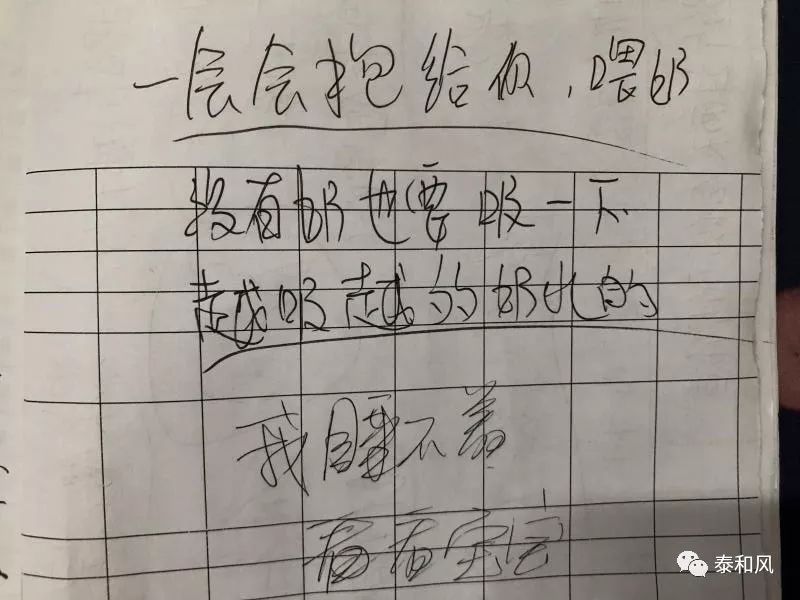 一会会抱给你，喂奶
没有奶也要吸一下
越吸越的奶也的
我睡不着
看看宝宝
泰和风